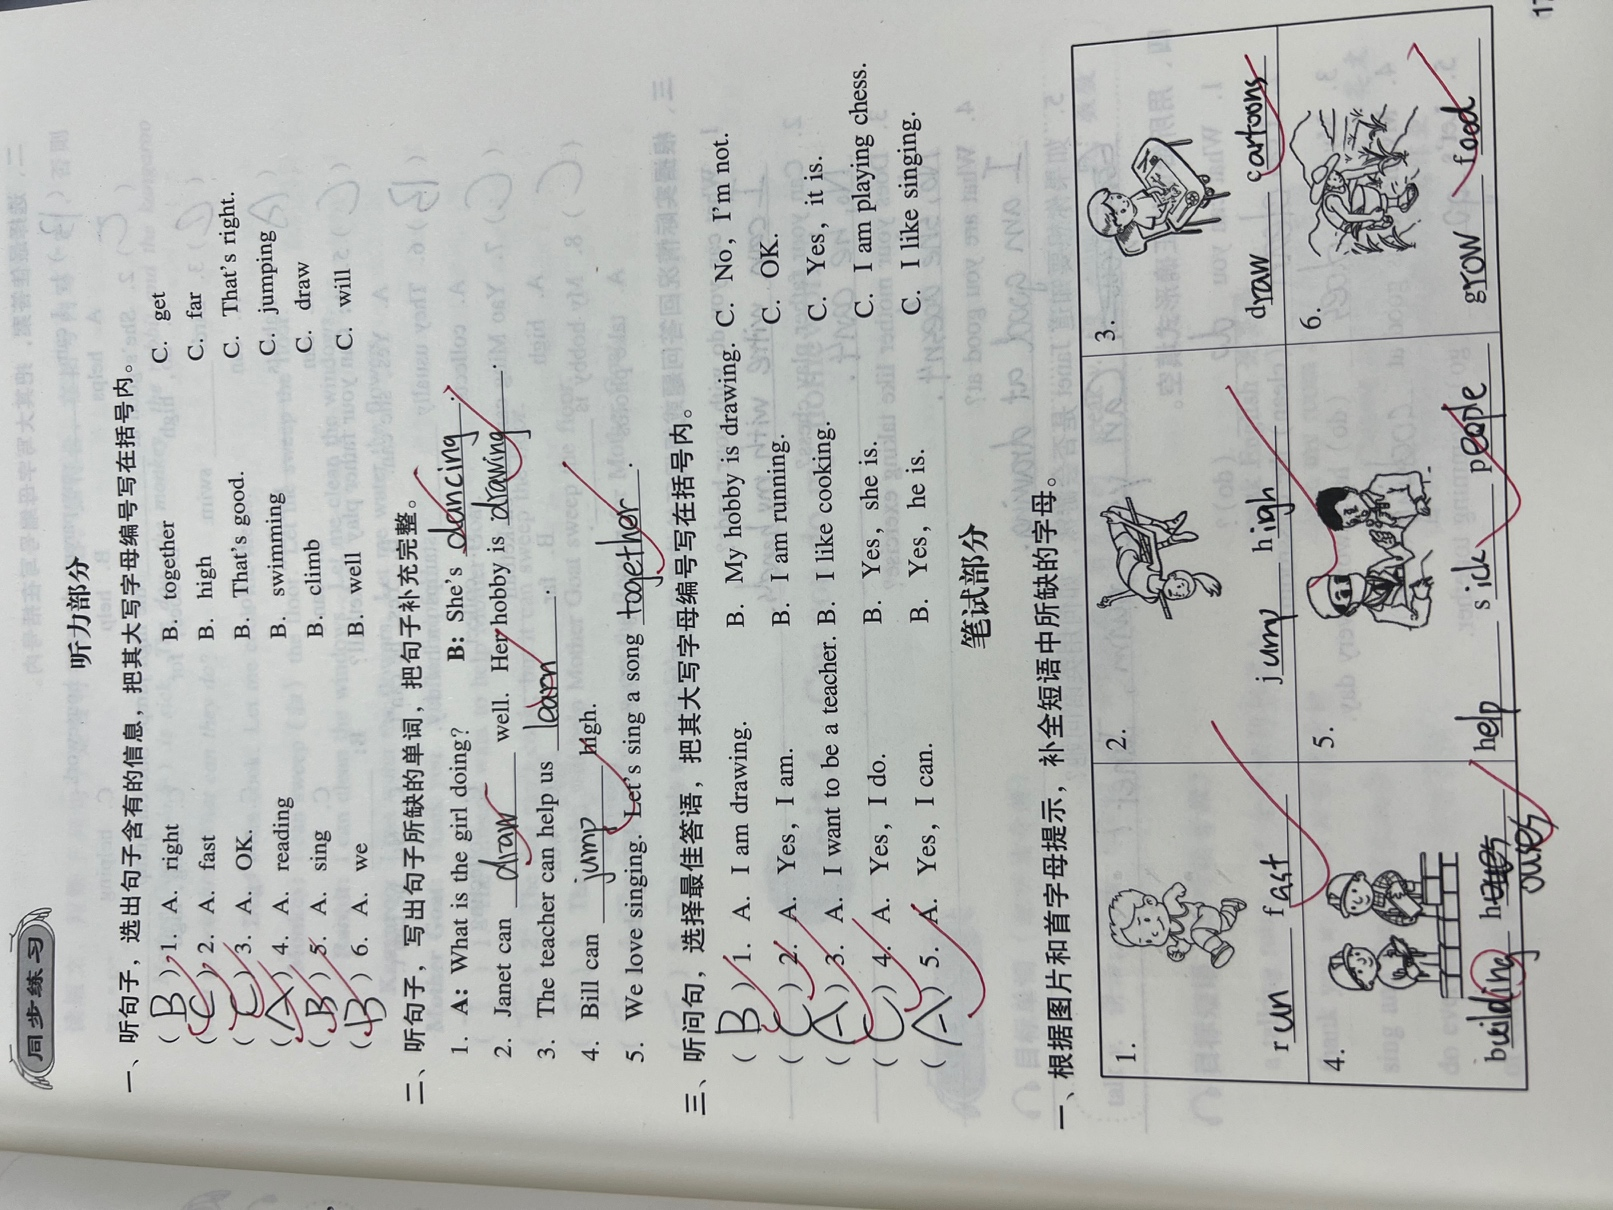 同步练习
听力部分
一、听句子，选出句子含有的信息，把其大写字母编号写在括号内。
( B ) 1. A. right B. together C. get
( C ) 2. A. fast B. high C. far
( C ) 3. A. OK. B. That's good. C. That's right.
( A ) 4. A. reading B. swimming C. jumping
( B ) 5. A. sing B. climb C. draw
( B ) 6. A. we B. well C. will
二、听句子，写出句子所缺的单词，把句子补充完整。
1. A: What is the girl doing? B: She's dancing.
2. Janet can draw well. Her hobby is drawing.
3. The teacher can help us learn.
4. Bill can jump high.
5. We love singing. Let's sing a song together.
三、听问句，选择最佳答语，把其大写字母编号写在括号内。
( B ) 1. A. I am drawing. B. My hobby is drawing. C. No, I'm not.
( C ) 2. A. Yes, I am. B. I am running. C. OK.
( A ) 3. A. I want to be a teacher. B. I like cooking. C. Yes, it is.
( C ) 4. A. Yes, I do. B. Yes, she is. C. I am playing chess.
( A ) 5. A. Yes, I can. B. Yes, he is. C. I like singing.
笔试部分
一、根据图片和首字母提示，补全短语中所缺的字母。
1. 2. 3.
run fast jump high draw cartoons
4. 5. 6.
building h help sick people grow food
ouses